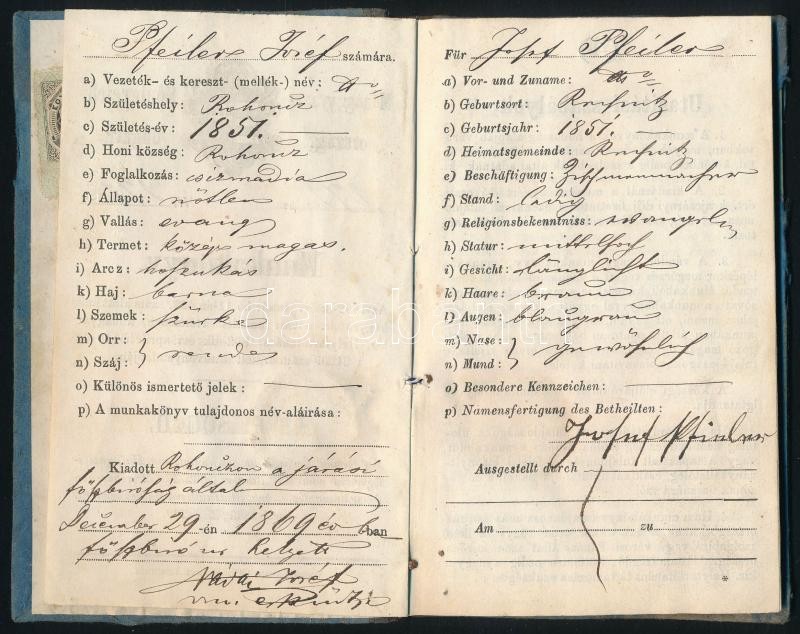 Pfeiler József számára.
a) Vezeték- és kereszt- (mellék-) név:
b) Születéshely: Rohoncz
c) Születés-év: 1851.
d) Honi község: Rohoncz
e) Foglalkozás: csizmadia
f) Állapot: nőtlen
g) Vallás: evang
h) Termet: közép magas.
i) Arcz: hoszukas
k) Haj: barna
l) Szemek: szürke
m) Orr:
n) Száj: rendes
o) Különös ismertető jelek:
p) A munkakönyv tulajdonos név-aláirása:
Kiadott Rohonczon a járási
főszbiróság által
December 29-én 1869 év ban
főszbiró ur helyett
József
Für Josef Pfeiler
a) Vor- und Zuname:
b) Geburtsort: Rechnitz
c) Geburtsjahr: 1851.
d) Heimatsgemeinde: Rechnitz
e) Beschäftigung: Zischmenmacher
f) Stand: ledig
g) Religionsbekenntniss: evangel
h) Statur: mittelhoch
i) Gesicht: länglicht
k) Haare: braun
l) Augen: blaugrau
m) Nase:
n) Mund: gewöhnlich
o) Besondere Kennzeichen:
p) Namensfertigung des Betheilten:
Josef Pfieler
Ausgestellt durch
Am zu
*
darabanth